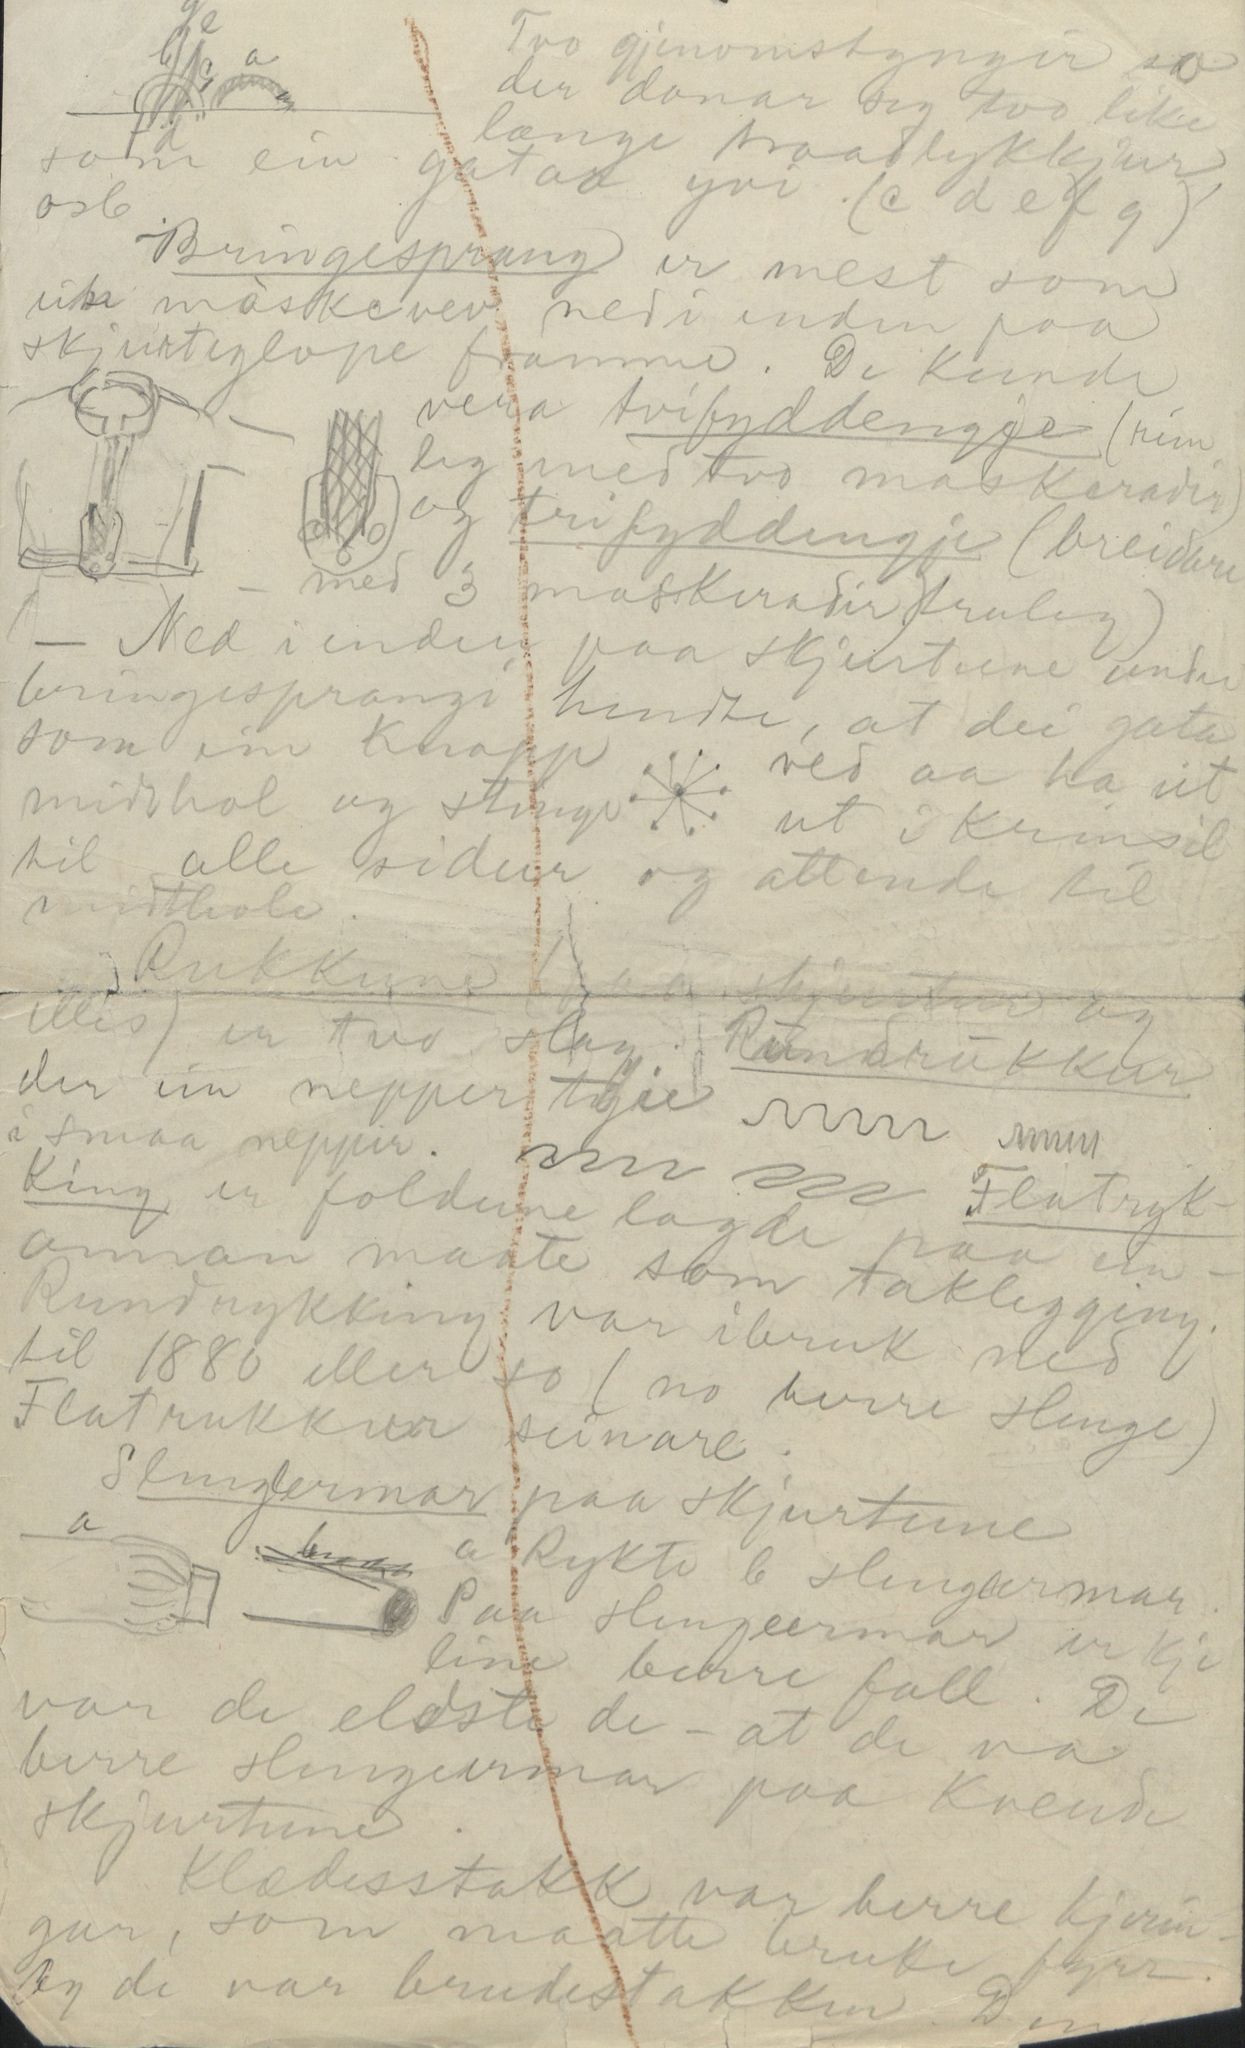 Tvo gjenomstyngir so
der danar seg tvo like
lange traadlykkjur
som ein gataa yvi. (c d e f g)
osb.
Bringesprang er mest som
maskevev nedi enden paa
skjurteglope framme. De kunde
vera tvifyddengje (rim
leg med tvo maskeradir)
og trifyddengje (breidare
– med 3 maskeradir truleg)
– Ned i enden paa skjurtune under
bringesprangi hendte, at dei gata
som ein knapp ved aa ha eit
midthol og stinge ut i krinsil
til alle sidur og attende til
midthole.
Rukkune (paa skjurtur og
ellis) er tvo slag. Rundrukkur
der ein nepper tyie
i smaa neppir. Flatryk-
king er foldune lagde paa ein
annan maate som taklegging.
Rundrykking var i bruk ned
til 1880 eller so (no berre slenge)
Flatrukkur seinare.
Slengermar paa skjurtune
a Rykte b slengermar.
Paa slengeermar er kje
line berre fall. De
var de eldste de – at de va
berre slengeermar paa kvende
skjurtune.
Klædesstakk var berre kjerin-
gar, som maatte bruke fyrr.
og de var brudestakken. Den
a
b
c
d
e
f
g
a
b